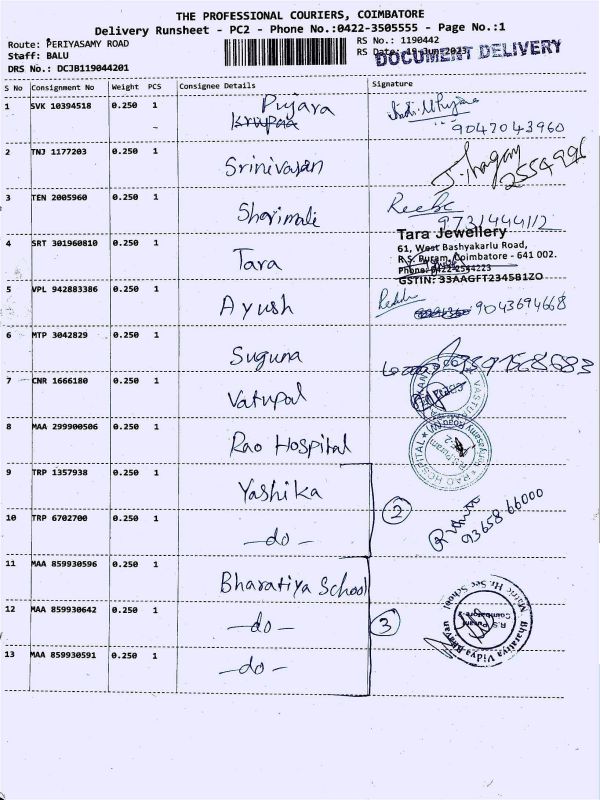 THE PROFESSIONAL COURIERS, COIMBATORE
Delivery Runsheet - PC2 - Phone No.:0422-3505555 - Page No.:1
Route: PERIYASAMY ROAD
RS No.: 1190442
Staff: BALU
RS Date:
DOCUMENT DELIVERY
DRS No.: DCJB119044201
S No Consignment No Weight PCS Consignee Details Signature
1 SVK 10394518 0.250 1 Pujara
9047043960
2 TNJ 1177203 0.250 1 Srinivasan
2554996
3 TEN 2005960 0.250 1 Sharimali
9731444112
4 SRT 301960810 0.250 1 Tara
Tara Jewellery
61, West Bashyakarlu Road,
R.S. Puram, Coimbatore - 641 002.
Phone: 0422-2544223
GSTIN: 33AAGFT2345B1ZO
5 VPL 942883386 0.250 1 Ayush
9043694668
6 MTP 3042829 0.250 1 Suguna
7 CNR 1666180 0.250 1 Vatupal
8 MAA 299900506 0.250 1 Rao Hospital
RAO HOSPITAL
9 TRP 1357938 0.250 1 Yashika
2
93658 66000
10 TRP 6702700 0.250 1 -do-
11 MAA 859930596 0.250 1 Bharatiya School
12 MAA 859930642 0.250 1 -do-
3
Bharatiya Vidya Bhavan
Matric Hr. Sec School
R.S. Puram
Coimbatore-2
13 MAA 859930591 0.250 1 -do-